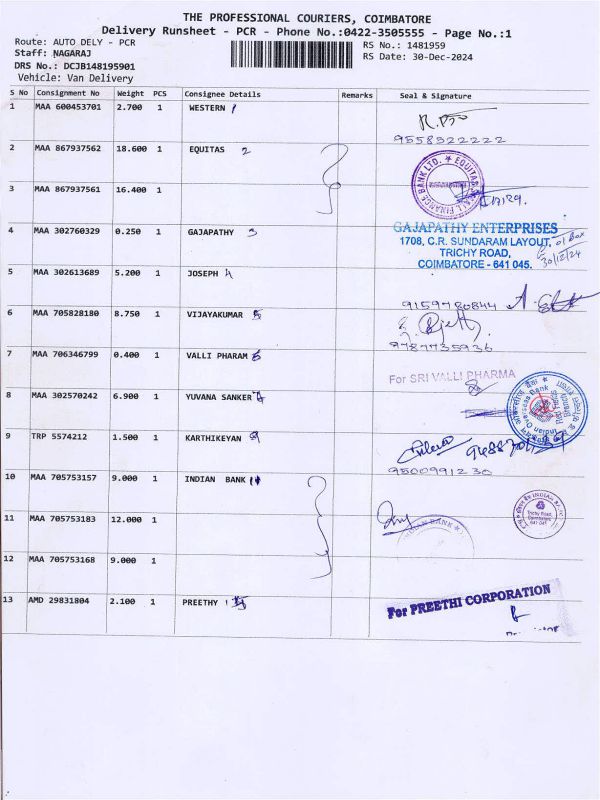 THE PROFESSIONAL COURIERS, COIMBATORE
Delivery Runsheet - PCR - Phone No.:0422-3505555 - Page No.:1
Route: AUTO DELY - PCR
Staff: NAGARAJ
DRS No.: DCJB148195901
Vehicle: Van Delivery
RS No.: 1481959
RS Date: 30-Dec-2024
S No Consignment No Weight PCS Consignee Details Remarks Seal & Signature
1 MAA 600453701 2.700 1 WESTERN 1
9558522222
2 MAA 867937562 18.600 1 EQUITAS 2
3 MAA 867937561 16.400 1
4 MAA 302760329 0.250 1 GAJAPATHY 3
GAJAPATHY ENTERPRISES
1708, C.R. SUNDARAM LAYOUT,
TRICHY ROAD,
COIMBATORE - 641 045.
01 Box
30/12/24
5 MAA 302613689 5.200 1 JOSEPH 4
9159780844
6 MAA 705828180 8.750 1 VIJAYAKUMAR 5
9787735936
7 MAA 706346799 0.400 1 VALLI PHARAM 6
For SRI VALLI PHARMA
8 MAA 302570242 6.900 1 YUVANA SANKER 7
Indian Overseas Bank
9 TRP 5574212 1.500 1 KARTHIKEYAN
9500991230
10 MAA 705753157 9.000 1 INDIAN BANK
11 MAA 705753183 12.000 1
INDIAN BANK
Trichy Road,
Coimbatore
641 045
12 MAA 705753168 9.000 1
13 AMD 29831804 2.100 1 PREETHY
For PREETHI CORPORATION